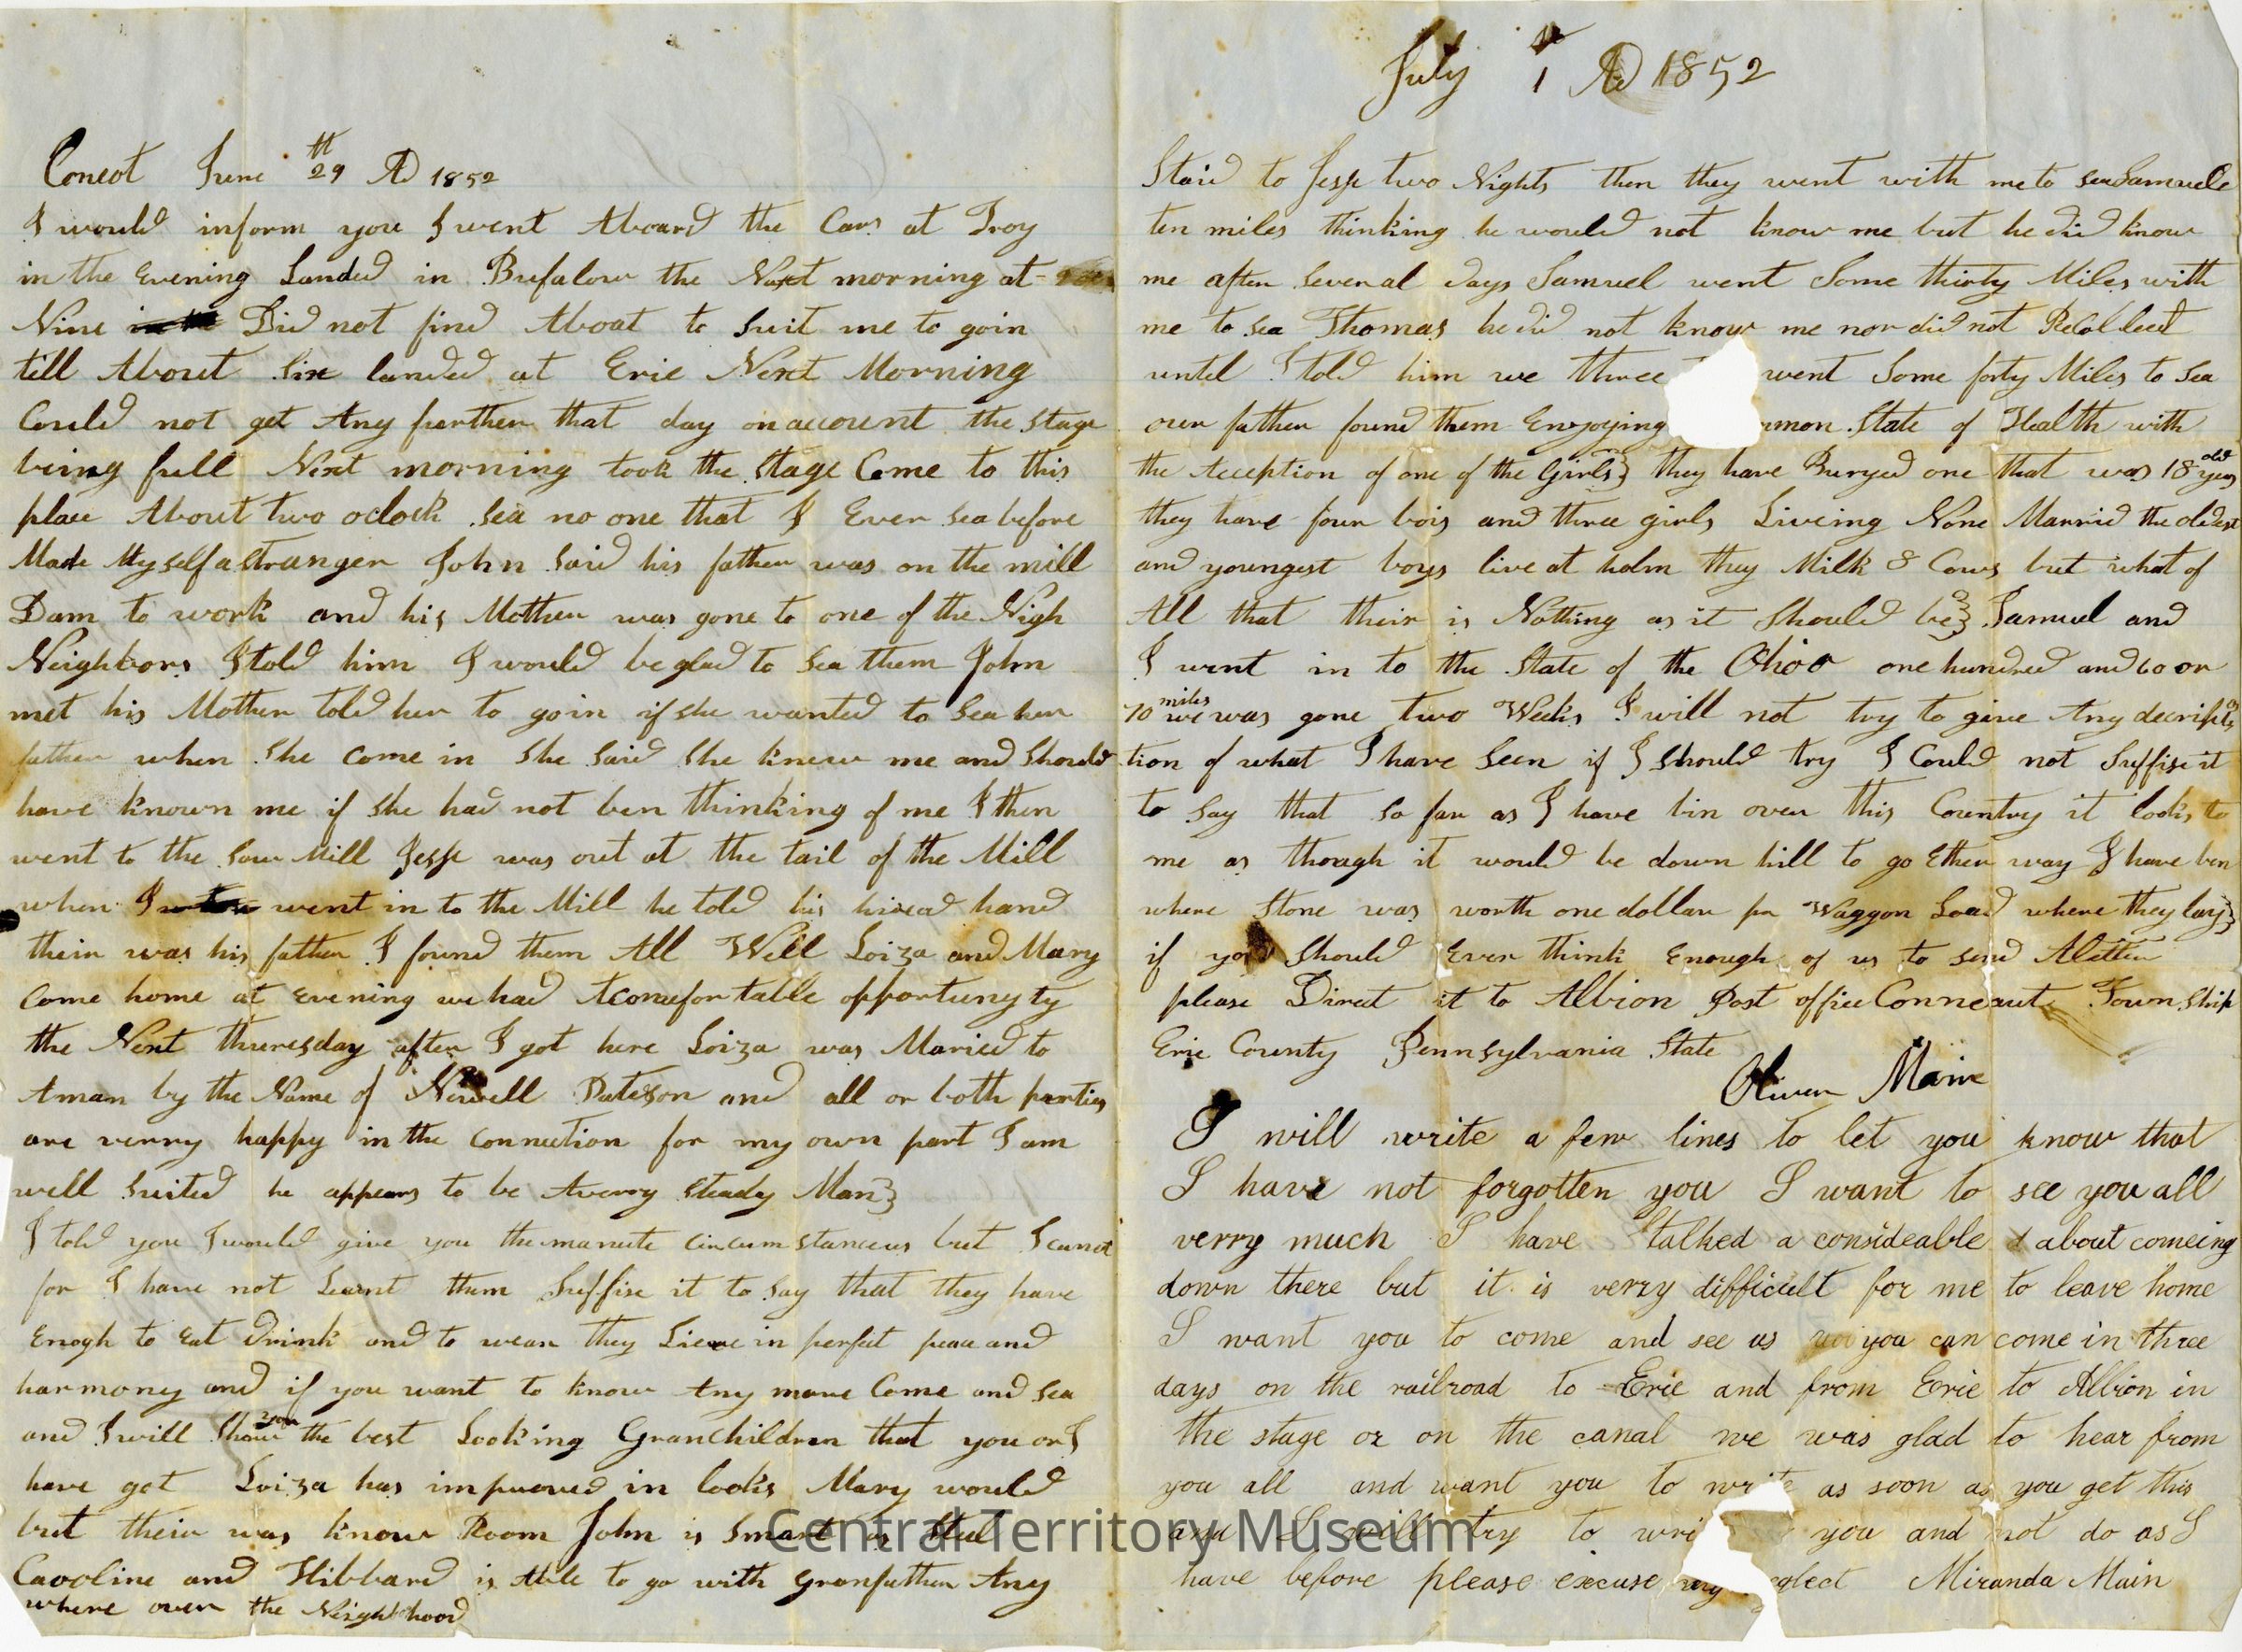 Coneot June 29th AD 1852
I would inform you I went Aboard the Cars at Troy
in the Evening Landed in Bufalow the Next morning at
Nine Did not find Aboat to suit me to goin
till About Six landed at Erie Next Morning
Could not get Any further that day on account the stage
being full Next morning took the stage Come to this
place About two oclock sea no one that I Ever sea before
Made My self a stranger John said his father was on the mill
Dam to work and his Mother was gone to one of the Nigh
Neighbors I told him I would be glad to sea them John
met his Mother told her to goin if she wanted to sea her
father when she come in she said she knew me and should
have known me if she had not ben thinking of me I then
went to the saw Mill Jesse was out at the tail of the Mill
when I went in to the Mill he told his hired hand
their was his father I found them All Well Loiza and Mary
Come home at evening we had Acomefortable opportunyty
the Next thuresday after I got here Loiza was Maried to
Aman by the Name of Newell Pateson and all or both parties
are verry happy in the connection for my own part I am
well suited he appears to be Averry steady Man
I told you I would give you the manute circumstances but I canot
for I have not Learnt them Suffise it to say that they have
Enogh to Eat Drink and to wear they Lieve in perfect peace and
harmony and if you want to know Any more Come and sea
and I will Show you the best Looking Granchildren that you or I
have got Loiza has improved in looks Mary would
but their was know Room John is Smart as Steel
Caroline and Hibbard is Able to go with granfather Any
where over the Neighbhood
July 1 AD 1852
Staid to Jesse two Nights then they went with me to sea Samuele
ten miles thinking he would not know me but he did know
me after several days Samuel went Some thirty Miles with
me to sea Thomas he did not know me nor did not Recollect
until I told him we three went Some forty Miles to Sea
our father found them Enjoying mmon State of Health with
the Acception of one of the Girls they have Buryed one that was 18 years old
they have four bois and three girls Liveing None Marrid the oldest
and youngest boys live at holm they Milk 8 Cows but what of
All that their is Nothing as it Should be Samuel and
I went in to the State of the Ohioo one hundred and 60 or
70 miles we was gone two Weeks I will not try to give Any decrip
tion of what I have Seen if I should try I Could not Suffise it
to say that so far as I have bin over this Country it looks to
me as though it would be down hill to go Ether way I have ben
where Stone was worth one dollar pr Waggon Load where they lay
if you should Ever think Enough of us to send Aletter
please Direct it to Albion Post office Conneaut Town Ship
Erie County Pennsylvania State
Oliver Main
I will write a few lines to let you know that
I have not forgotten you I want to see you all
verry much I have talked a consideable about comeing
down there but it is verry difficult for me to leave home
I want you to come and see us you can come in three
days on the railroad to Erie and from Erie to Albion in
the stage or on the canal we was glad to hear from
you all and want you to write as soon as you get this
and I will try to wri you and not do as I
have before please excuse my eglect Miranda Main
Central Territory Museum